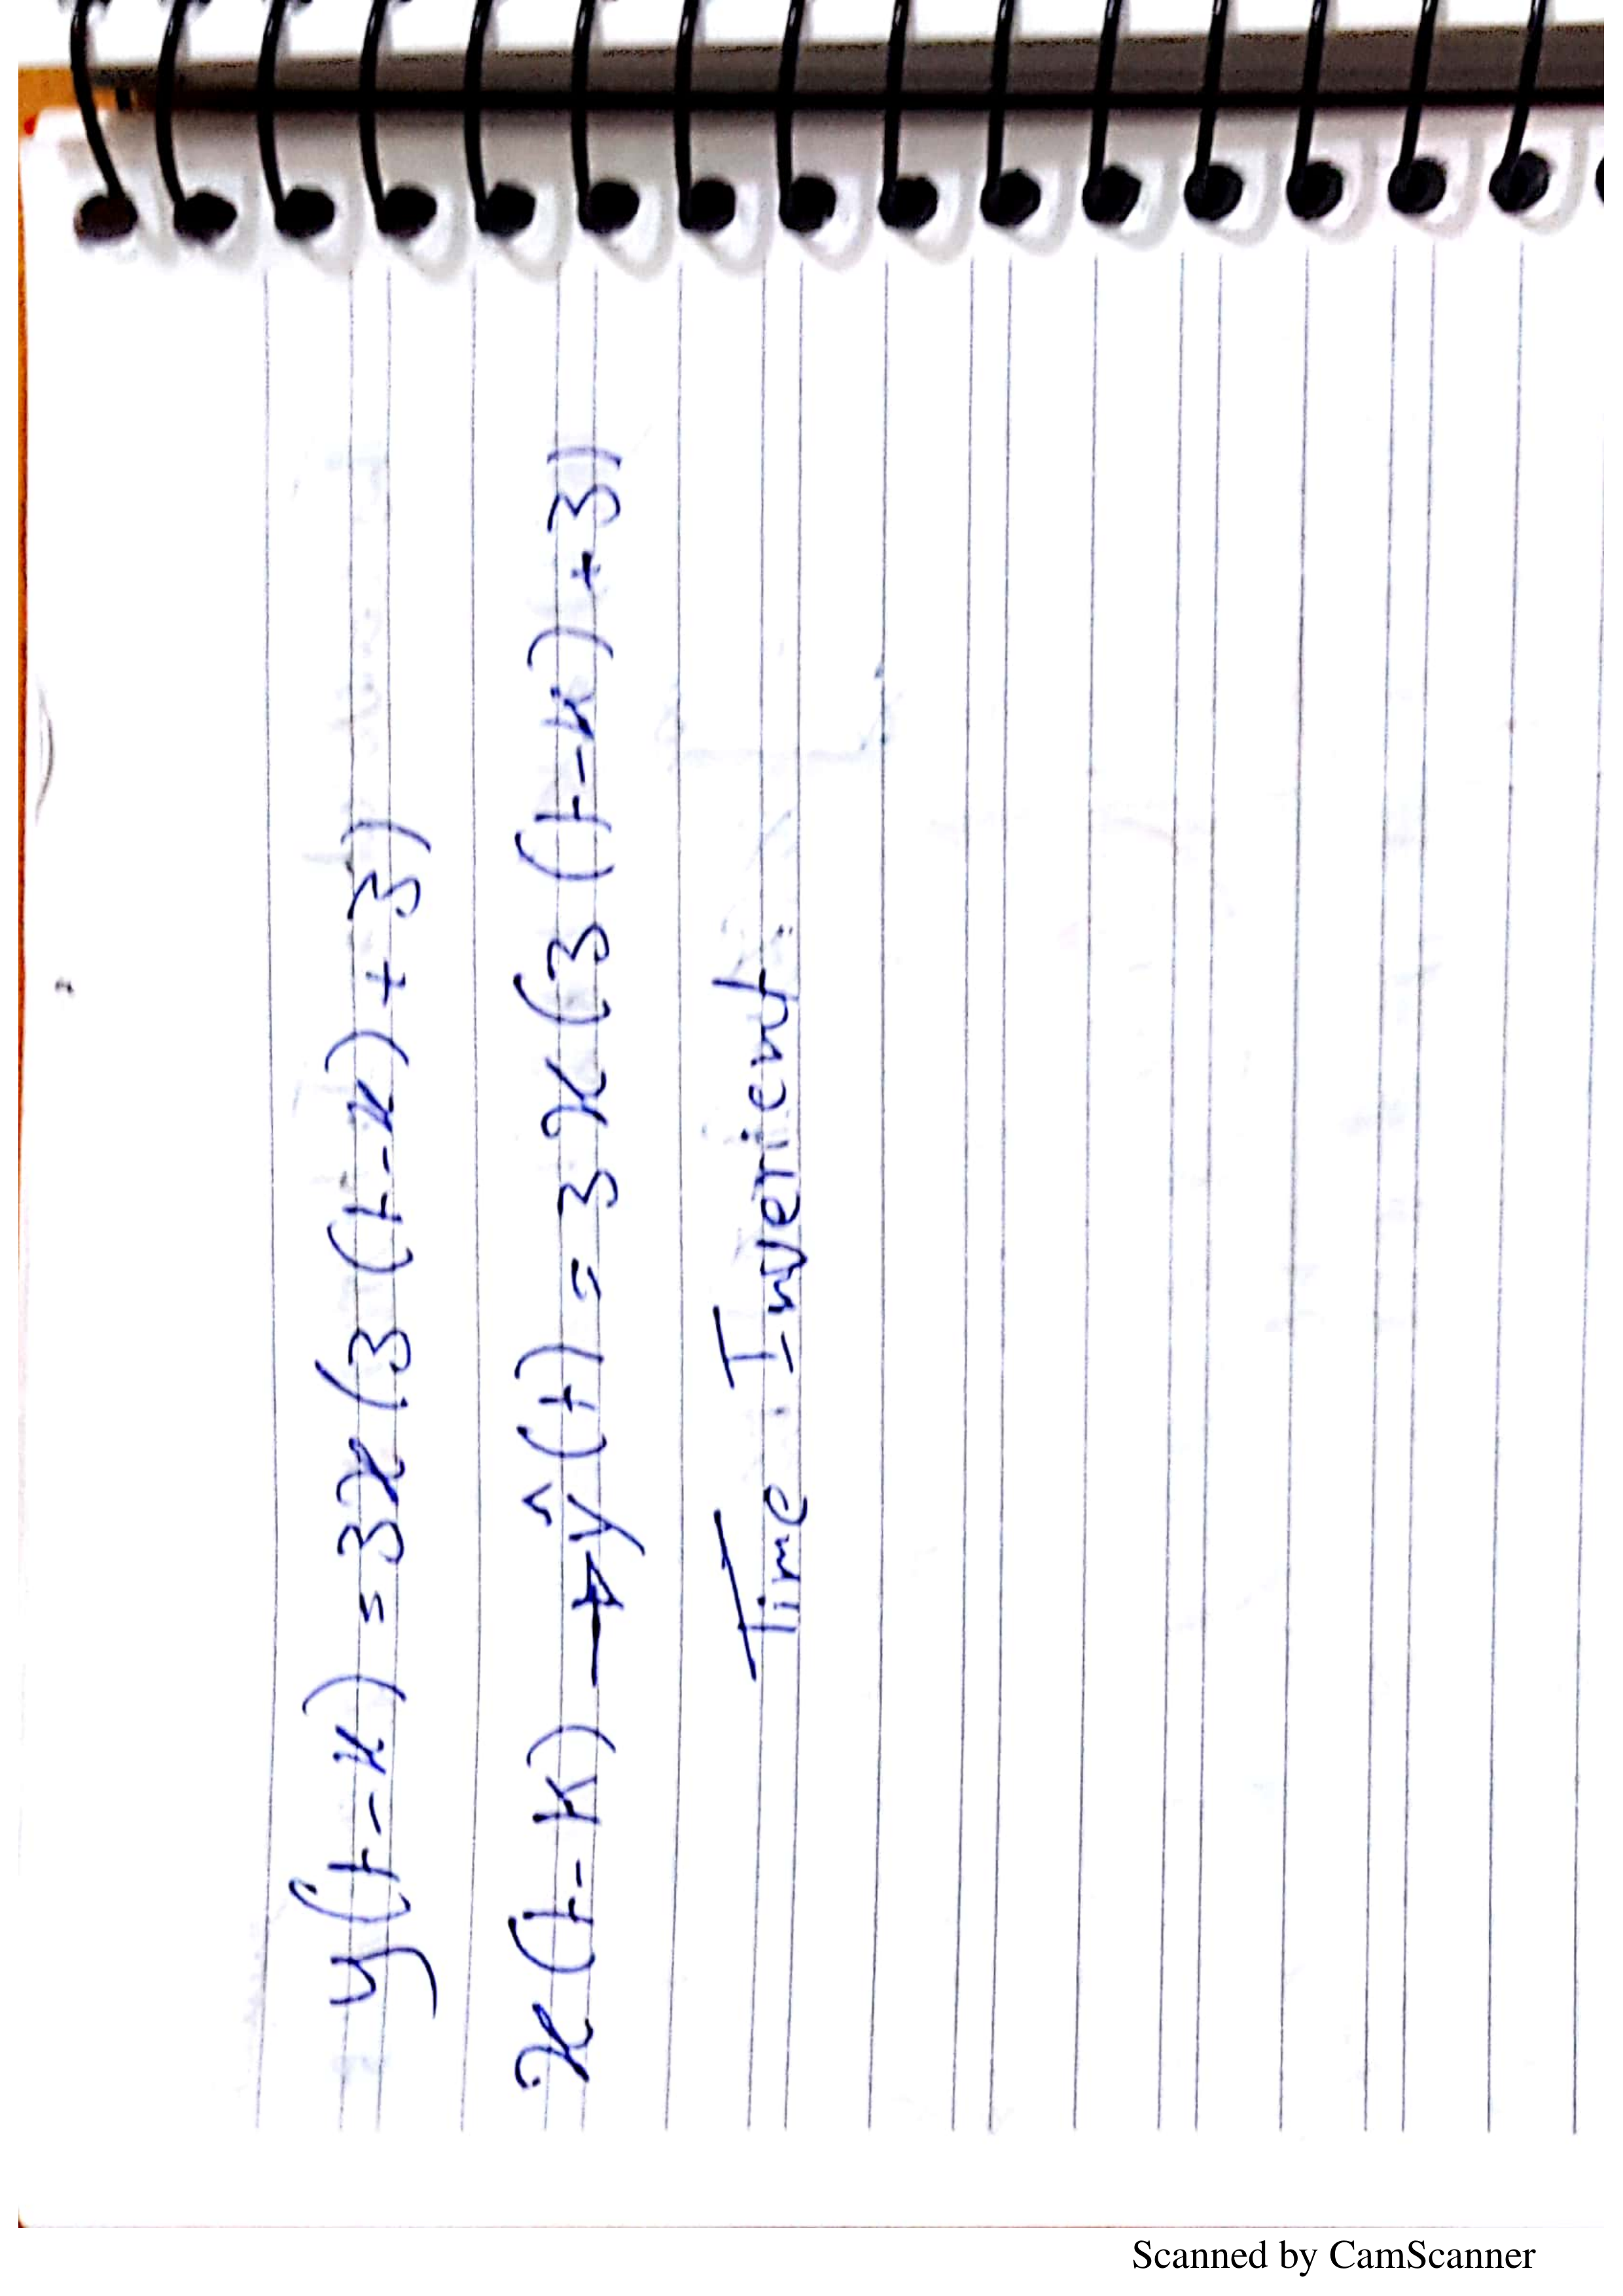 y(t-k) = 3x(3(t-k)+3)
x(t-k) → ŷ(t) = 3x(3(t-k)+3)
Time Inverient
Scanned by CamScanner